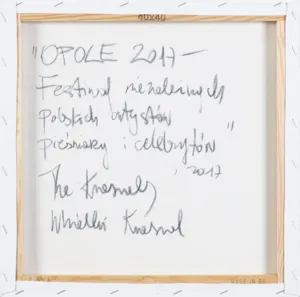 40X40
"OPOLE 2017 –
Festiwal niezależnych
polskich artystów
pieśniarzy i celebrytów"
2017
The Krasnals
Whielki Krasnal